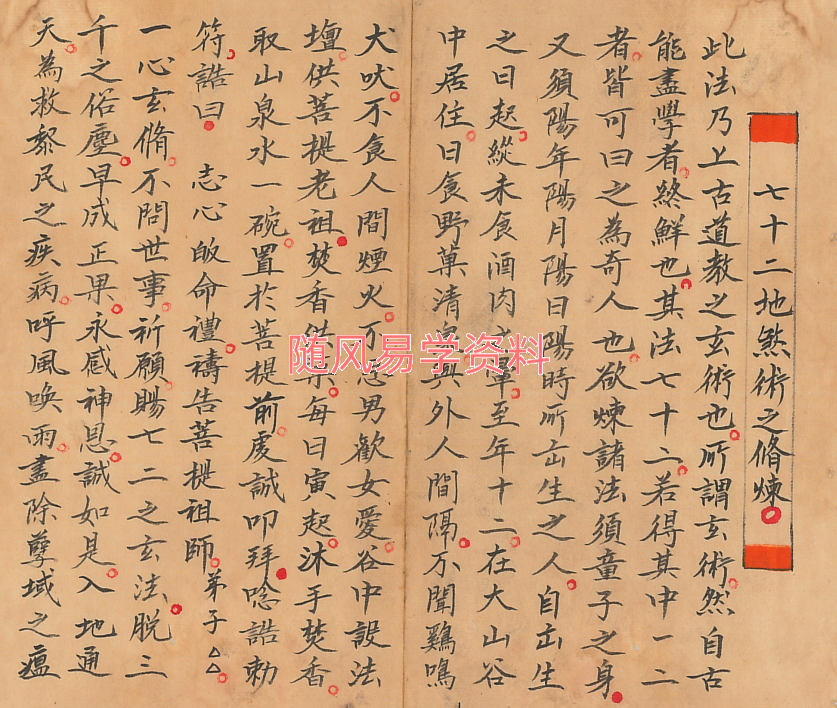 七十二地煞術之脩煉
此法乃上古道教之玄術也所謂玄術然自古
能盡學者終鮮也其法七十二若得其中一二
者皆可曰之為奇人也欲煉諸法須童子之身
又須陽年陽月陽日陽時所出生之人自出生
之日起縱未食酒肉 至年十二在大山谷
中居住日食野菓清 與外人間隔不聞鷄鳴
犬吠不食人間煙火不 男歡女愛谷中設法
壇供菩提老祖焚香供菓每日寅起沐手焚香
取山泉水一碗置於菩提前虔誠叩拜唸誥勅
符誥曰 志心皈命禮禱告菩提祖師弟子△△
一心玄脩不問世事祈願賜七二之玄法脫三
千之俗塵早成正果永感神恩誠如是入地通
天為救黎民之疾病呼風喚雨盡除孽域之瘟
随风易学资料